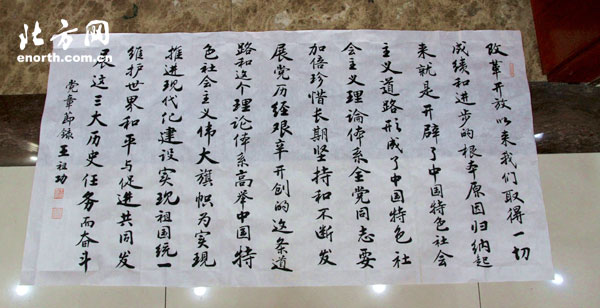 北方网
enorth.com.cn
改革开放以来我们取得一切
成绩和进步的根本原因归纳起
来就是开辟了中国特色社会
主义道路形成了中国特色社
会主义理论体系全党同志要
加倍珍惜长期坚持和不断发
展党历经艰辛开创的这条道
路和这个理论体系高举中国特
色社会主义伟大旗帜为实现
推进现代化建设实现祖国统一
维护世界和平与促进共同发
展这三大历史任务而奋斗
党章节錄 王祖功